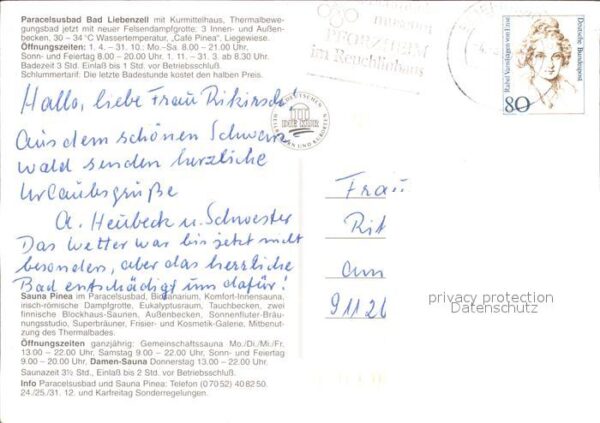 Paracelsusbad Bad Liebenzell mit Kurmittelhaus, Thermalbewe-
gungsbad jetzt mit neuer Felsendampfgrotte: 3 Innen- und Außen-
becken, 30 – 34 °C Wassertemperatur, „Café Pinea", Liegewiese.
Öffnungszeiten: 1. 4. – 31. 10.: Mo.-Sa. 8.00 – 21.00 Uhr,
Sonn- und Feiertag 8.00 – 20.00 Uhr. 1. 11. – 31. 3. ab 8.30 Uhr.
Badezeit 3 Std. Einlaß bis 1 Std. vor Betriebsschluß.
Schlummertarif: Die letzte Badestunde kostet den halben Preis.
museen
PFORZHEIM
im Reuchlinhaus
Rahel Varnhagen von Ense
Deutsche Bundespost
80
Hallo, liebe Frau
Aus dem schönen Schwarz-
wald senden herzliche
Urlaubsgrüße
A. Heubeck u. Schwester
Das Wetter war bis jetzt nicht
besonders, aber das herrliche
Bad entschädigt uns dafür!
DIE KUR
Frau
Rit
am
9112
privacy protection
Datenschutz
Sauna Pinea im Paracelsusbad, Biosanarium, Komfort-Innensauna,
irisch-römische Dampfgrotte, Eukalyptusraum, Tauchbecken, zwei
finnische Blockhaus-Saunen, Außenbecken, Sonnenfluter-Bräu-
nungsstudio, Superbräuner, Frisier- und Kosmetik-Galerie, Mitbenut-
zung des Thermalbades.
Öffnungszeiten ganzjährig: Gemeinschaftssauna Mo./Di./Mi./Fr.
13.00 – 22.00 Uhr, Samstag 9.00 – 22.00 Uhr, Sonn- und Feiertag
9.00 – 20.00 Uhr. Damen-Sauna Donnerstag 13.00 – 22.00 Uhr.
Saunazeit 3½ Std., Einlaß bis 2 Std. vor Betriebsschluß.
Info Paracelsusbad und Sauna Pinea: Telefon (0 70 52) 40 82 50.
24./25./31. 12. und Karfreitag Sonderregelungen.